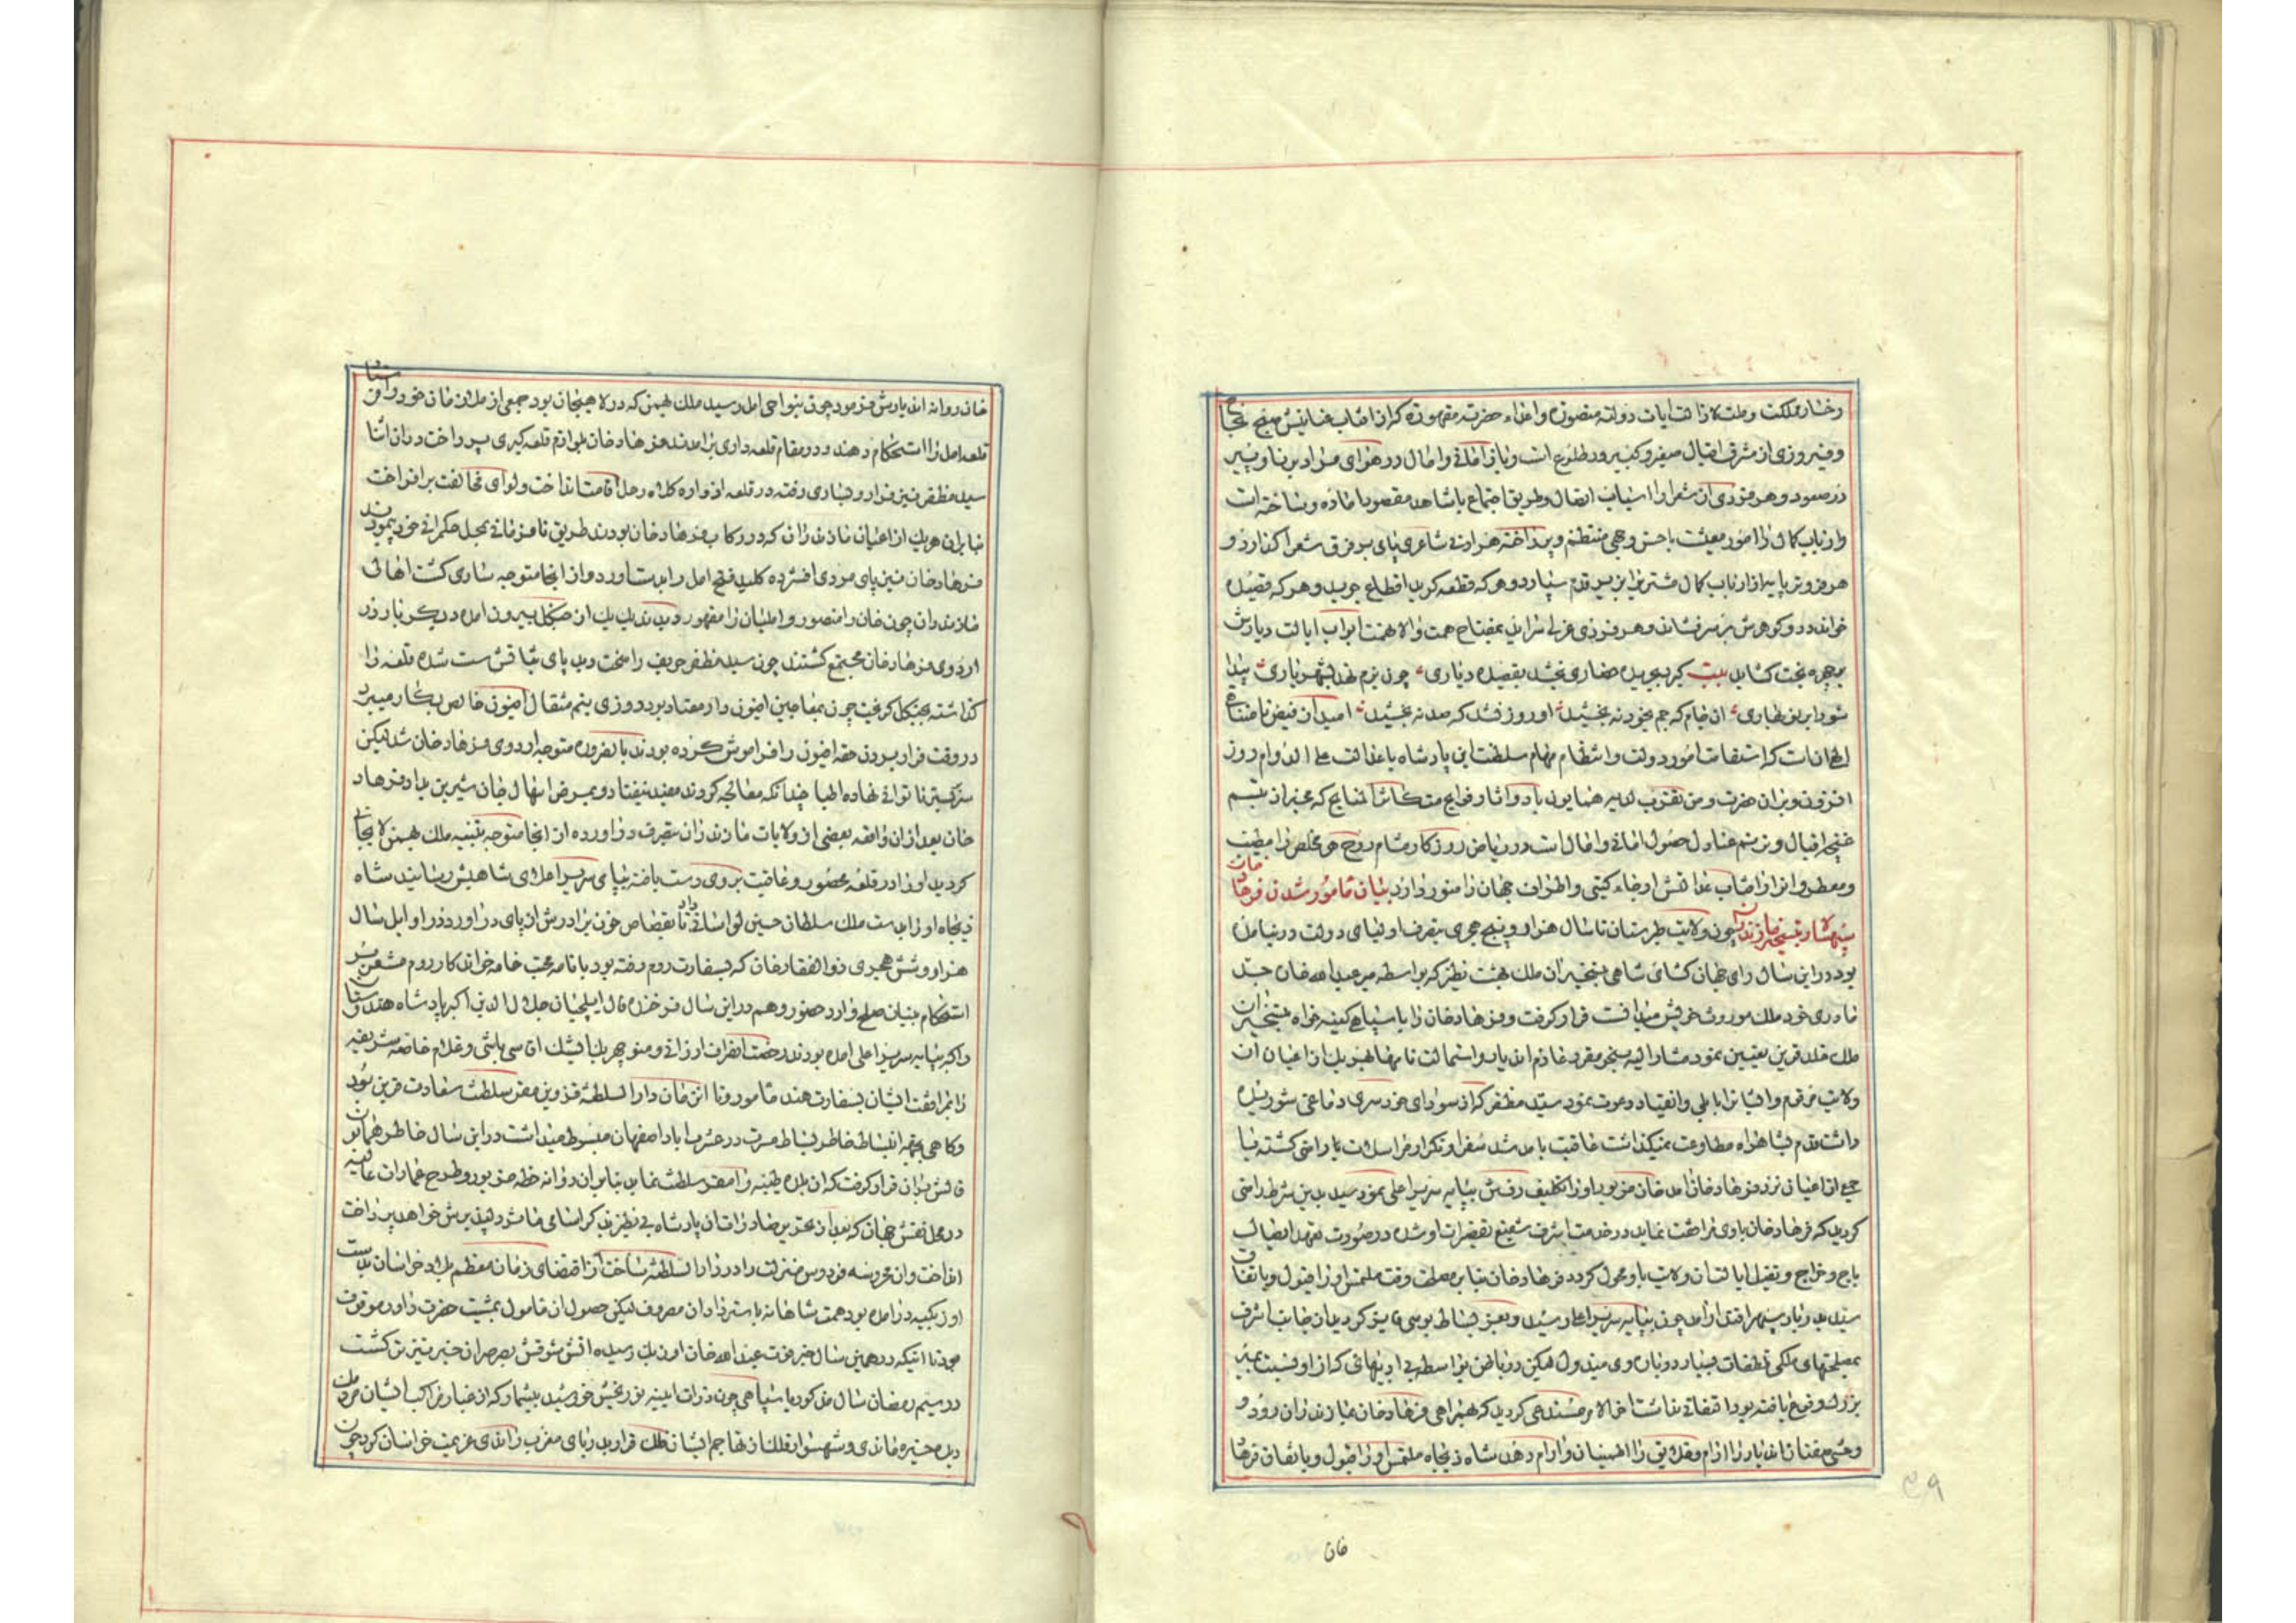 رخسار مملکت و ملت لازالت ایات دولته منصوره و اعداء حضرته مقهوره کزان افتاب عنایتش صبح نجاح
و فیروزی از مشرق اقبال صغیر و کبیر در طلوع است و باز امانی و امال در هوای مراد برنا و پیر
در صعود و هر فردی از شعرا را اسباب اتصال و طریق اجتماع با شاهد مقصود اماده و ساخته است
و ارباب کمال را امور معیشت باحسن وجهی منتظم و پرداخته هر ادنی شاعری پای بر فرق شعرا گذارد و
هر فروتر پایه از ارباب کمال مشتری را بزیر قدم سپارد و هر که قطعه گوید اقطاع جوید و هر که قصیده
خواند در و گوهرش بر سر فشاند و هر فردی غزلی سراید بمفتاح همت والانهمت ابواب ایالت دیارش
بر چهره بخت گشاید بیت گیرد بجریده حصاری بخشد بقصیده دیاری چون بزم نهد بشهریاری پیدا
شود ابر نوبهاری ان جام که جم بخود نه بخشید او روز فشد که صد نه بخشید امید از فیض نامتناهی
الهی انکه استقامت امور دولت و انتظام مهام سلطنت این پادشاه با عدالت علی الدوام روز
افزون و بران حضرت و من تقرب لدیه همایون باد و اثار فوایح متکاثر المنایح که عبیر از نسیم
غنچه اقبال و تبسم عنادل حصول امانی و امال است در ریاض روزگار مشام روح هر مخلص را مطیب
و معطر و انوار افتاب عدالتش ارجاء گیتی و اطراف جهان را منور دارد بیان مامور شدن فرهاد خان
سپهسالار بتسخیر مازندران چون ولایت طبرستان تا سال هزار و پنج هجری بتصرف اولیای دولت در نیامده
بود در این سال رای جهان گشای شاهی بتسخیر ان ملک بهشت نظیر که بواسطه میر عبدالله خان جد
مادری خود ملک موروث خویش میدانست قرار گرفت و فرهاد خان را با سپاهی کینه خواه بتسخیر ان
ملک خلد قرین تعیین نمود مشارالیه بنحو مقرر عازم ان دیار و استمالت نامها بهر یک از اعیان ان
ولایت مرقوم و ایشان را باطی و انقیاد دعوت نمود سید مظفر که از سودای خودسری دماغی شوریده
داشت قدم بشاهراه مطاوعت نمیگذاشت عاقبت بامد شد سفرا و تکرار مراسلات با او راضی گشته با
جمعی از اعیان نزد فرهاد خان امد خان مزبور او را تکلیف رفتن بپایه سریر اعلی نمود سید بدین شرط راضی
گردید که فرهاد خان با وی مرافقت نماید و در خدمت اشرف شفیع تقصیرات او شده در صورت تعهد ایصال
باج و خراج و تقبل ایالت ان ولایت باو محول گردد فرهاد خان بنابر مصلحت وقت ملتمس او را قبول و باتفاق
سید بدربار سپهر اقتدار امد چون بپایه سریر اعلی رسید و بعز بساط بوسی فایز گردید از جانب اشرف
بمصلحتهای ملکی تلطفات بسیار درباره وی مبذول لیکن در باطن بواسطه بی ادبیهائی که از او نسبت بمیر
بزرگ وقوع یافته بود التفاتی نداشت اخر الامر مستدعی گردید که بهمراهی فرهاد خان بمازندران رود و
وحشی صفتان ان دیار را ارام و قلوب را اطمینان و ارام دهد شاه ذیجاه ملتمس او را قبول و باتفاق فرهاد
خان
خان روانه ان دیارش فرمود چون بنواحی امل رسید ملک بهمن که در لاهیجان بود جمعی از ملازمان خود را فرستاد
قلعه امل را استحکام دهند و در مقام قلعه داری برامدند فرهاد خان بلوازم قلعه گیری پرداخت در ان اثنا
سید مظفر نیز فرار و بساری رفته در قلعه ازداره کلاه رحل اقامت انداخت و لوای مخالفت برافراخت
بنا بران هر یک از اعیان مازندران که در رکاب فرهاد خان بودند طریق نافرمانی بمحل حکمرانی خود پیمودند
فرهاد خان نیز پای مردی افشرده کلید فتح امل را بدست اورد و از انجا متوجه ساری گشت اهالی
مازندران چون خان را منصور و املیان را مقهور دیدند یک یک از جنگل بیرون امده دیگر بار در
اردوی فرهاد خان مجتمع گشتند چون سید مظفر حریف را سخت دید پای ثباتش سست شده قلعه را
گذاشته بجنگل گریخت چون بمعاجین افیون دار معتاد بود و روزی پنج مثقال افیون خالص بکار میبرد
در وقت فرار بردن حقه افیون را فراموش کرده بودند بالضروره متوجه اردوی فرهاد خان شد لیکن
سر بر بستر ناتوانی نهاده اطبا چندانکه معالجه کردند مفید نیفتاد و بمرض اسهال جان شیرین بداد فرهاد
خان بعد از ان واقعه بعضی از ولایات مازندران بتصرف دراورده از انجا متوجه تنبیه ملک بهمن لاریجانی
گردید او را در قلعه محصور و عاقبت بر وی دست یافته بپای سریر اعلای شاهیش رسانید شاه
ذیجاه او را بدست ملک سلطان حسین لواسانی داد تا بقصاص خون برادرش از پای دراورد در اوایل سال
هزار و شش هجری ذوالفقار خان که بسفارت روم رفته بود با نامه محبت ختامه خواندکار روم مشعر بر
استحکام بنیان صلح وارد حضور و هم در این سال فرخنده فال ایلچیان جلال الدین اکبر پادشاه هندوستان
و اکبر بپایه سریر اعلی امده بودند رخصت انصراف ارزانی و منوچهر بیک ایشیک اقاسی باشی و غلام خاصه شریفه
را بمرافقت ایشان بسفارت هند مامور و تا ان زمان دارالسلطنه قزوین مقر سلطنت سعادت قرین بود
و گاهی بجهه انبساط خاطر بساط مسرت در عشرت اباد اصفهان مبسوط میداشت در این سال خاطر همایون
فالش بران قرار گرفت که ان بلده طیبه را مقر سلطنت نماید بنابران روانه خطه مزبور و طرح عمارات عالیه
در محل نقش جهان که بعد از تحریر صادرات ان پادشاه بی نظیر بذکر اسامی ماثر دلپذیرش خواهد پرداخت
انداخت و ان محروسه فردوس منزلت را دارالسلطنه ساخت از اقتضای زمان معظم بلاد خراسان بدست
اوزبکیه درامده بود همت شاهانه باسترداد ان مصروف لیکن حصول ان مامول بمشیت حضرت داور موقوف
بود تا انیکه در همین سال خبر فوت عبدالله خان اوزبک رسیده اتش شوقش بصرصر ان خبر تیزتر گشت
در سیم رمضان سال مذکور با سپاهی چون ذرات ایینه نوربخش خورشید بیشمار که از غبار مراکب ایشان مردمان
دیده خیره ماندی و شهسوار فلک از تهاجم ایشان فلک قرار بدریای مغرب راندی عزیمت خراسان کرد چون